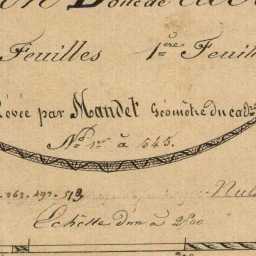 Feuilles 1ère Feuil
Levée par Mandet Géomètre du cad
Nos 1er à 545.
263. 297. 519
Nul
Echelle d'un à 2500